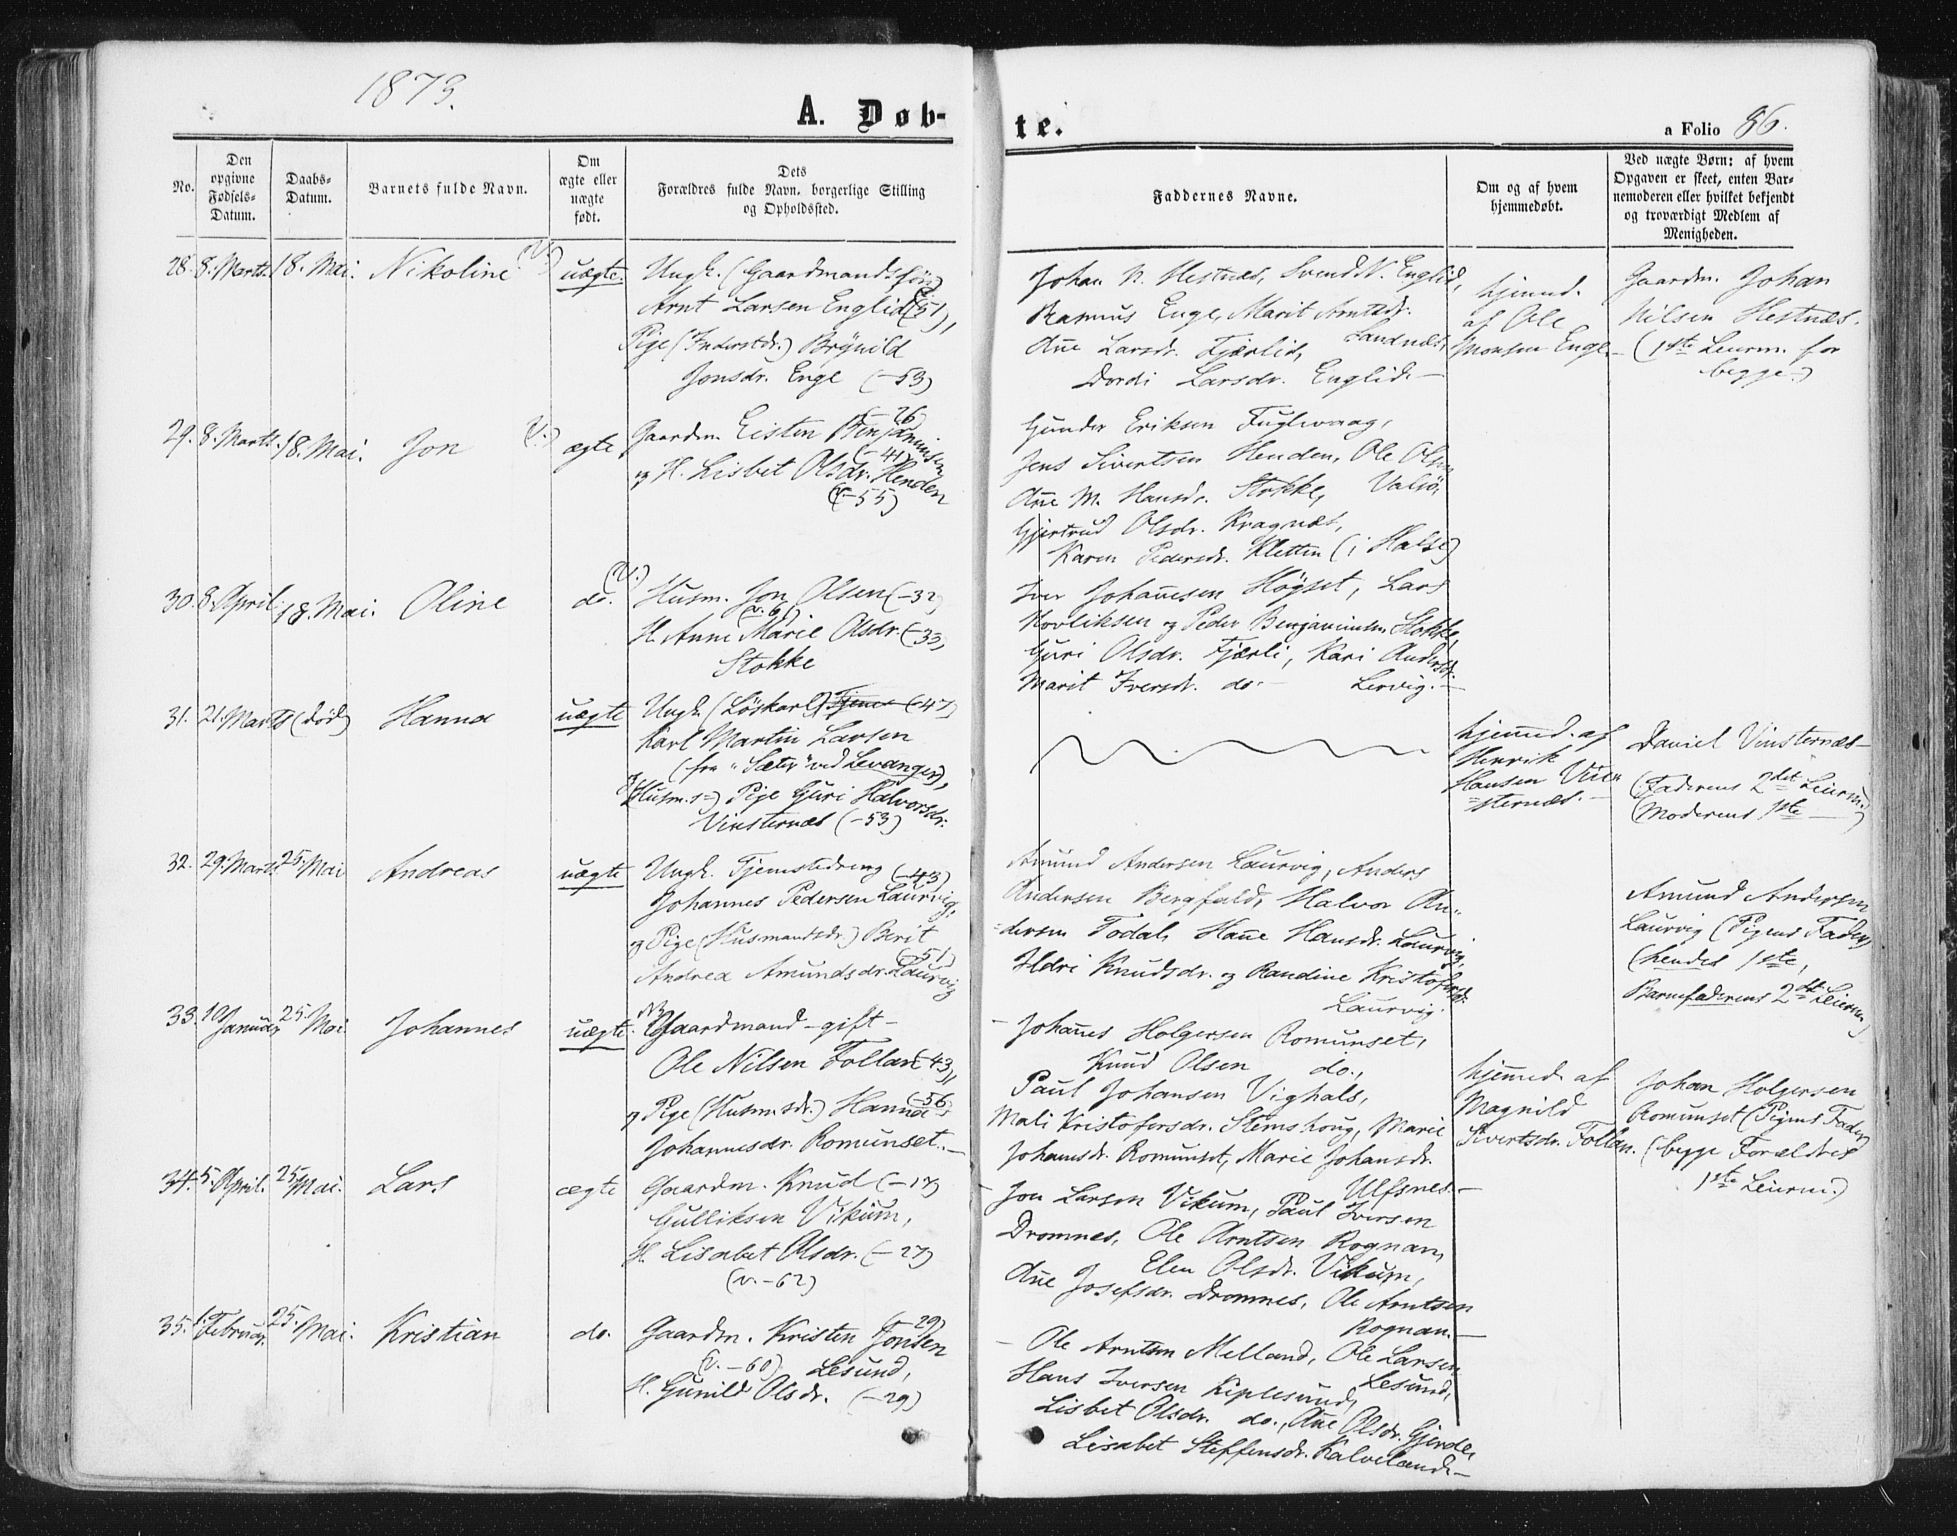 1873.
A. Døb-
te.
a Folio 86.
No.
Den
opgivne
Fødsels-
Datum.
Daabs-
Datum.
Barnets fulde Navn.
Om
ægte eller
uægte
født.
Dets
Forældres fulde Navn, borgerlige Stilling
og Opholdssted.
Faddernes Navne.
Om og af hvem
hjemmedøbt.
Ved uægte Børn: af hvem
Opgaven er skeet, enten Bar-
nemoderen eller hvilket bekjendt
og troværdigt Medlem af
Menigheden.
28. 8. Marts. 18. Mai. Nikoline (V.) uægte.
Ungk. (Gaardmandssøn)
Arnt Larsen Englid (-51),
Pige (Inderstdr.) Brynild
Jonsdr. Enge (-53)
Johan N. Hestnæs, Svend N. Englid,
Rasmus Enge, Marit Arntsdr.
Sandnæs,
Ane Larsdr. Fjærlid,
Dordi Larsdr. Englid.
hjemmed.
af Ole
Monsen Enge
Gaardm. Johan
Nilsen Hestnæs.
(1ste Leierm. for
begge.)
29. 8. Marts. 18. Mai. Jon (V.) ægte
Gaardm. Eisten Benjaminsen (-26)
(-41)
og H. Lisbet Olsdr. Henden
(v.-55)
Gunder Eriksen Fuglevaag,
Jens Sivertsen Henden, Ole Olsen
Valsø,
Ane M. Hansdr. Stokke,
Gjertrud Olsdr. Kragnæs,
Karen Pedersdr. Kletten (i Halse)
30. 8. April. 18. Mai. Oline (V.) do.
Husm. Jon Olsen (-32)
(v. 61)
H. Anne Marie Olsdr. (-33,
Stokke
Iver Johannesen Høgset, Lars
og Peder Benjaminsen Stokke,
Guri Olsdr. Fjærli, Kari Andersdr.
Marit Iversdr. do. Lervig.
31. 21. Marts (død) Hanna uægte
Ungk. (Løskarl) (-47)
Karl Martin Larsen
(fra "Sæter" ved Levanger),
og (Husm.s-) Pige Guri Halvorsdr.
Vinsternæs (-53)
hjemmed. af
Henrik
Hansen Vin-
sternæs.
Daniel Vinsternæs
(Faderens 2det Leierm.
Moderens 1ste)
32. 29. Marts 25. Mai Andreas uægte
Ungk. Tjenestedreng (-43)
Johannes Pedersen Laurvig,
og Pige (Husmandsdr.) Berit
(-51)
Andrea Amundsdr. Laurvig
Amund Andersen Laurvig, Anders
Andersen Bergfald, Halvor An-
dersen Todal, Hane Hansdr. Laurvig,
Ildri Knudsdr. og Randine Kristofersdr.
Laurvig.
Amund Andersen
Laurvig (Pigens Fader)
(hendes 1ste,
Barnefaderens 2det Leierm.)
33. 10. Januar 25. Mai. Johannes uægte.
Gaardmand - gift -
Ole Nilsen Follan (-43),
(-56)
og Pige (Husm.sdr.) Hanna
Johannesdr. Romunset.
Johanes Holgersen Romunset,
Knud Olsen do.,
Paul Johansen Vighals,
Mali Kristofersdr. Stemshoug, Marie
Johansdr. Romunset, Marie Johansdr.
Ulfsnes.
hjemmed. af
Magnild
Sivertsdr. Follan.
Johan Holgersen
Romunset (Pigens Fader)
(begge Forældres
1ste Leierm.)
34. 5. April. 25. Mai. Lars ægte
Gaardm. Knud (-17)
Gulliksen Vikum,
H. Lisabet Olsdr. (-27)
(v. -62)
Jon Larsen Vikum, Paul Iversen
Dromnes, Ole Arntsen Rognan,
Elen Olsdr. Vikum,
Ane Josefsdr. Dromnes, Ole Arntsen
Rognan.
35. 1. Februar. 25. Mai. Kristian do.
Gaardm. Kristen Jonsen (-29)
(v. -60) Lesund,
H. Gunild Olsdr. (-29)
Ole Arntsen Melland, Ole Larsen
Lesund,
Hans Iversen Kiplesund,
Lisbet Olsdr. do., Ane Olsdr. Gjerde,
Lisabet Steffensdr. Kalveland.